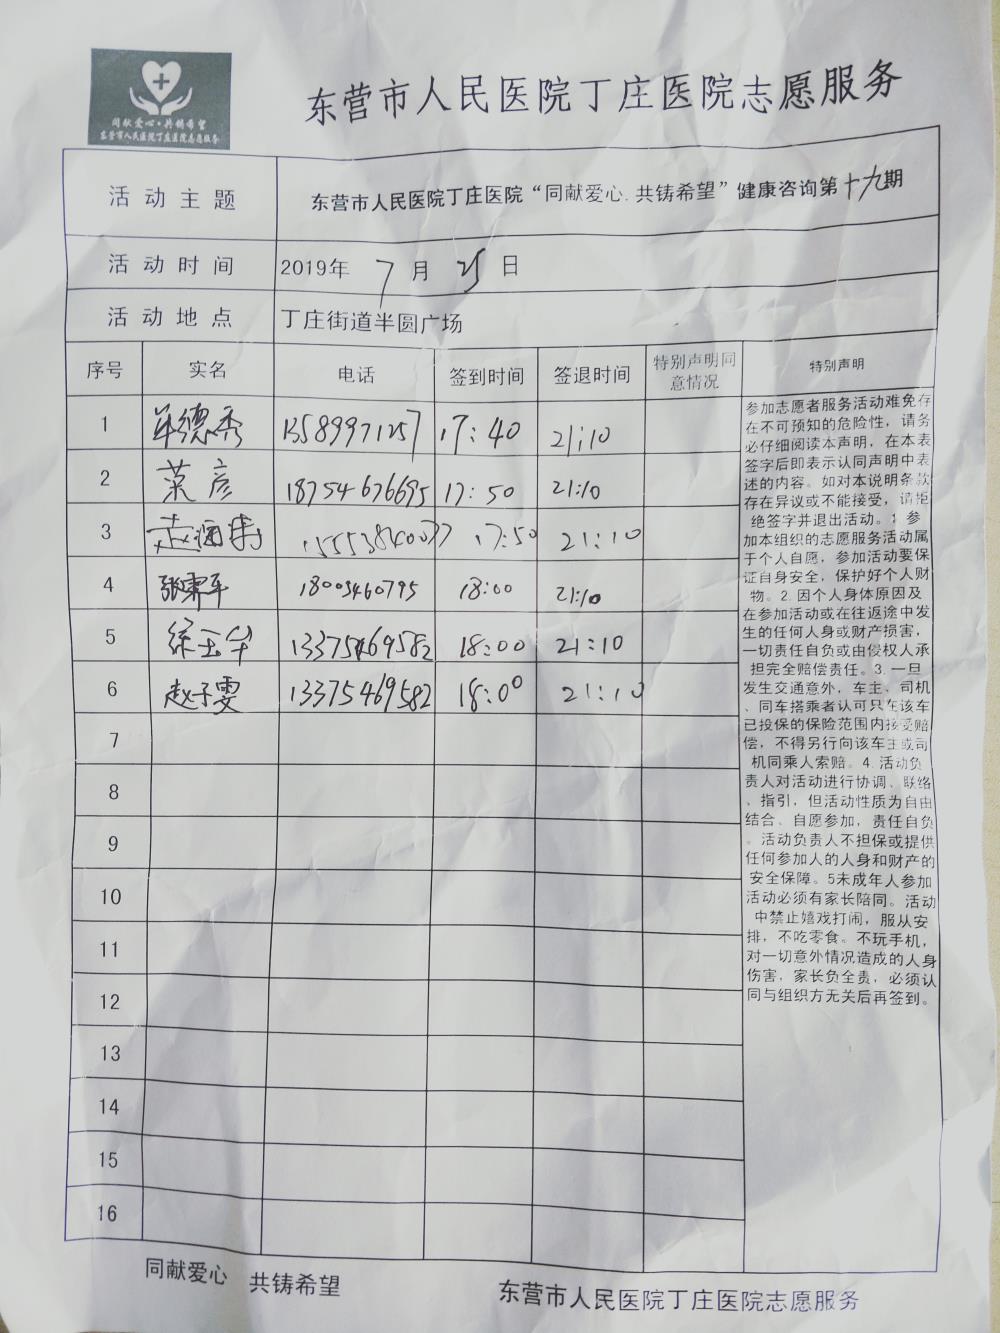 同献爱心·共铸希望
东营市人民医院丁庄医院志愿服务
东营市人民医院丁庄医院志愿服务
活动主题 东营市人民医院丁庄医院“同献爱心.共铸希望”健康咨询第十九期
活动时间 2019年 7 月 25 日
活动地点 丁庄街道半圆广场
序号 实名 电话 签到时间 签退时间 特别声明同意情况 特别声明
1 单德秀 13589971257 17:40 21:10
2 彦 18754676695 17:50 21:10
3 赵 17:50 21:10
4 张 18005460795 18:00 21:10
5 徐玉华 13375469582 18:00 21:10
6 赵子雯 13375469582 18:00 21:10
7
8
9
10
11
12
13
14
15
16
参加志愿者服务活动难免存
在不可预知的危险性，请务
必仔细阅读本声明，在本表
签字后即表示认同声明中表
述的内容。如对本说明条款
存在异议或不能接受，请拒
绝签字并退出活动。1.参
加本组织的志愿服务活动属
于个人自愿，参加活动要保
证自身安全，保护好个人财
物。2.因个人身体原因及
在参加活动或在往返途中发
生的任何人身或财产损害，
一切责任自负或由侵权人承
担完全赔偿责任。3.一旦
发生交通意外，车主、司机
、同车搭乘者认可只在该车
已投保的保险范围内接受赔
偿，不得另行向该车主或司
机同乘人索赔。4.活动负
责人对活动进行协调、联络
、指引，但活动性质为自由
结合、自愿参加，责任自负
。活动负责人不担保或提供
任何参加人的人身和财产的
安全保障。5未成年人参加
活动必须有家长陪同。活动
中禁止嬉戏打闹，服从安
排，不吃零食。不玩手机，
对一切意外情况造成的人身
伤害，家长负全责，必须认
同与组织方无关后再签到。
同献爱心 共铸希望
东营市人民医院丁庄医院志愿服务